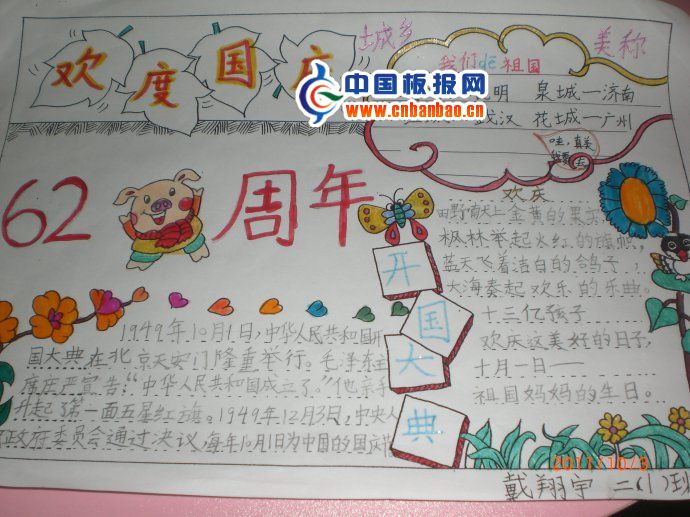 欢度国庆
中国板报网
www.cnbanbao.cn
城乡
美称
我们de祖国
明 泉城—济南
武汉 花城—广州
哇,真美
我要去
62 周年
开国大典
1949年10月1日,中华人民共和国开
国大典在北京天安门隆重举行。毛泽东主
席庄严宣告:“中华人民共和国成立了。”他亲手
升起了第一面五星红旗。1949年12月3日,中央人
政府委员会通过决议,每年10月1日为中国的国庆节
欢庆
田野献上金黄的果实,
枫林举起火红的旗帜,
蓝天飞着洁白的鸽子,
大海奏起欢乐的乐曲。
十三亿孩子
欢庆这美好的日子,
十月一日——
祖国妈妈的生日。
2011/10/3
戴翔宇 二(1)班